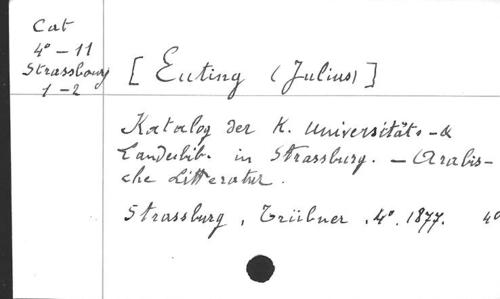 Cat
4° - 11
Strassbourg
1 - 2
[ Euting (Julius) ]
Katalog der K. Universitäts - &
Landesbib. in Strassburg. - Arabis-
che Litteratur.
Strassburg, Trübner. 4°. 1877. 4°